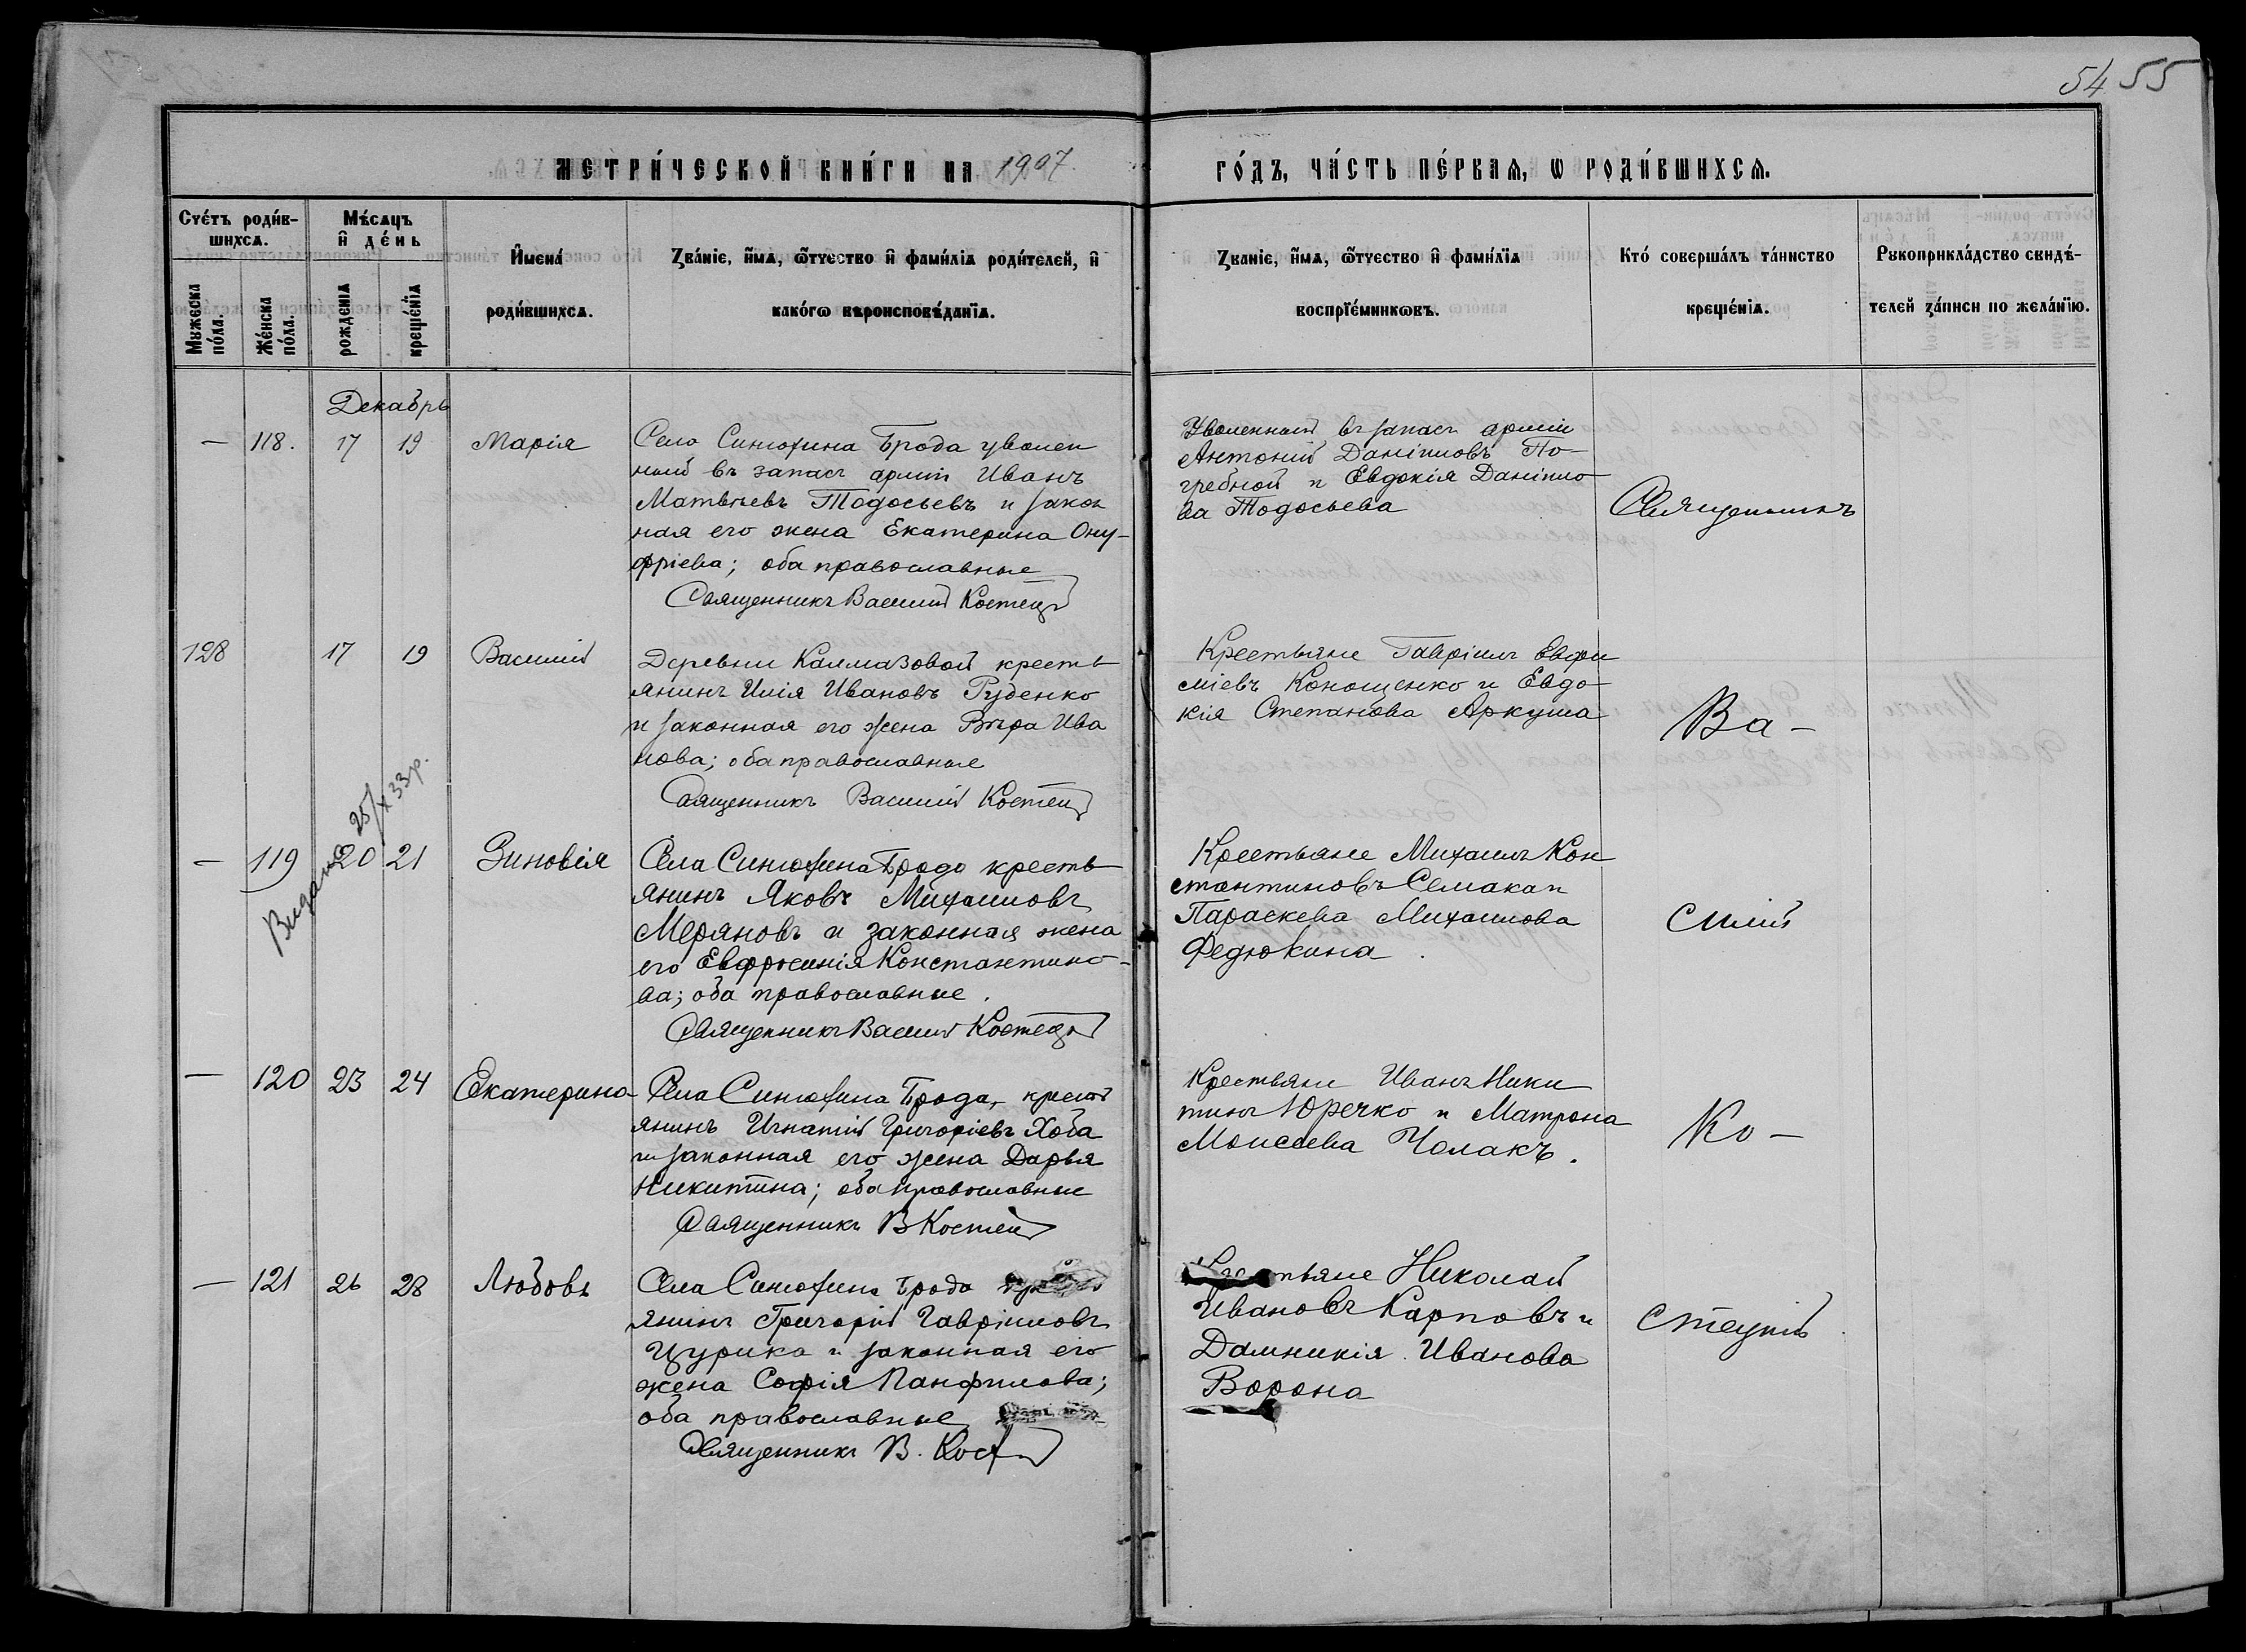 54 55
МЕТРИ́ЧЕСКОЙ КНИ́ГИ НА 1907 ГО́ДЪ, ЧА́СТЬ ПЕ́РВАѦ, Ѡ РОДИ́ВШИХСѦ.
Сче́тъ роди́в-
шихсѧ.
Мужеска
по́ла.
Же́нска
по́ла.
Мѣ́сѧцъ
и҆ де́нь
рожденїѧ
креще́нїѧ
И҆мена́
роди́вшихсѧ.
Зва́нїе, и҆́мѧ, ѻ҆́тчество и҆ фами́лїѧ роди́телей, и҆
како́гѡ вѣроисповѣ́данїѧ.
Зва́нїе, и҆́мѧ, ѻ҆́тчество и҆ фами́лїѧ
воспрїе́мникѡвъ.
Кто́ соверша́лъ та́инство
креще́нїѧ.
Рукоприкла́дство свидѣ́-
телей за́писи по жела́нїю.
Декабрь
— 118. 17 19 Марія
Села Синюхина Брода уволен
ный въ запасъ арміи Иванъ
Матвѣевъ Тодосьевъ и закон
ная его жена Екатерина Ону-
фріева; оба православные
Священникъ Василій Костецкій
Уволенный въ запасъ арміи
Антоній Даніиловъ По-
гребной и Евдокія Даніило
ва Тодосьева
Священникъ
128 17 19 Василій
Деревни Калмазовой кресть
янинъ Илія Ивановъ Руденко
и законная его жена Вѣра Ива
нова; оба православные
Священникъ Василій Костецкій
Крестьяне Гавріилъ Евфи
міевъ Конощенко и Евдо
кія Степанова Аркуша
Ва-
— 119 20 21 Зиновія
Видано 25/X 33р.
Села Синюхина Брода кресть
янинъ Яковъ Михаиловъ
Меряновъ и законная жена
его Евфросинія Константино-
ва; оба православные.
Священникъ Василій Костецкій
Крестьяне Михаилъ Кон
стантиновъ Семака и
Параскева Михаилова
Федюкина
силій
— 120 23 24 Екатерина
Села Синюхина Брода, кресть
янинъ Игнатій Григоріевъ Хоба
и законная его жена Дарья
Никитина; оба православные
Священникъ В Костецкій
Крестьяне Иванъ Ники
тинъ Юречко и Матрона
Моисеева Чолакъ.
Ко-
— 121 26 28 Любовь
Села Синюхина Брода
янинъ Григорій Гавріиловъ
Цурика и законная его
жена Софія Панфилова;
оба православные
Священникъ В. Кост
Крестьяне Николай
Ивановъ Карповъ и
Домникія Иванова
Ворона
стецкій